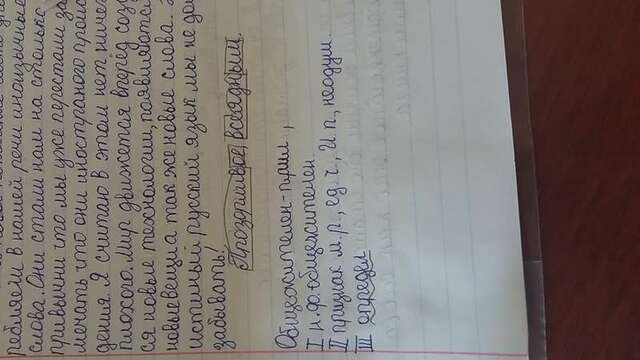 ребляем в нашей речи иноязычные
слова. Они стали нам на столько
привычни что мы уже перестали за
мечать что они иностраного проис
дения. Я считаю в этом нет ниче
плохого. Мир движется вперёд созд
ся новые технологии, появляются
новые вещи а так же новые слова.
истиный русский язык мы не до
забывать!
Прозорливое, всеядным.
Общежителен-прил,
I н.ф. общежителен.
II признак м.р., ед.ч., И.п., неодуш.
III определ